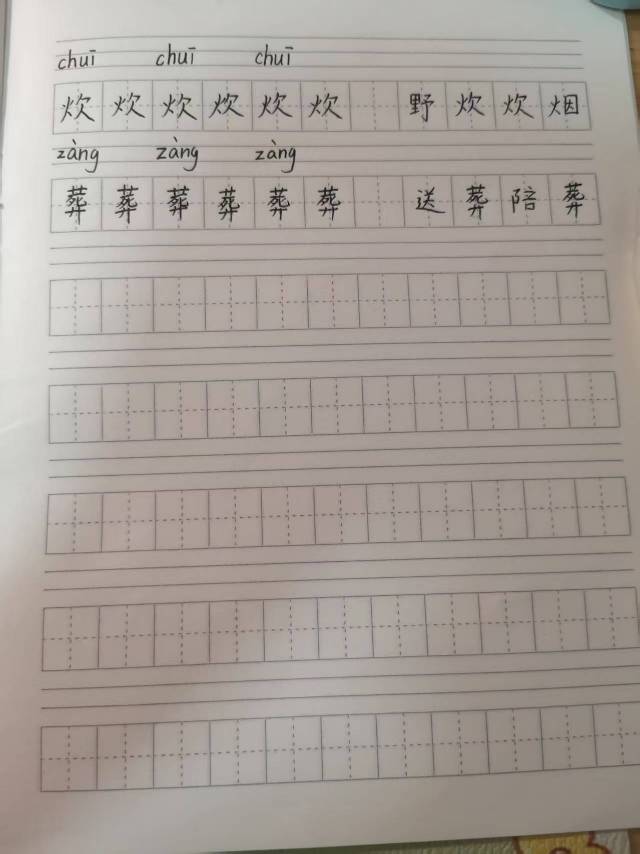 chuī chuī chuī
炊炊炊炊炊炊 野炊炊烟
zàng zàng zàng
葬葬葬葬葬葬 送葬陪葬